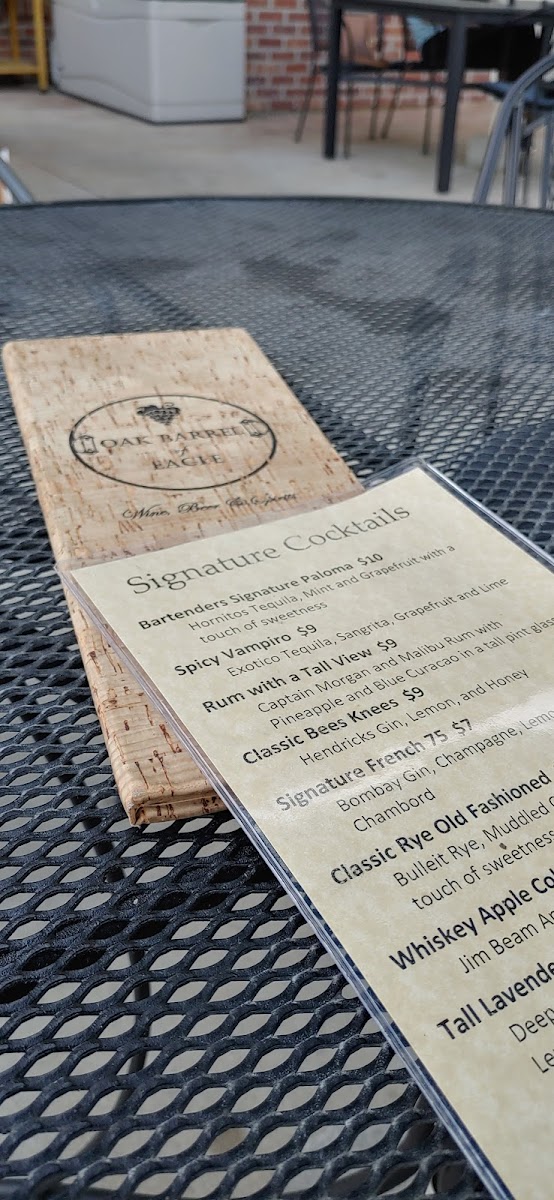 OAK BARREL
of
EAGLE
Wine, Beer & Spirits
Signature Cocktails
Bartenders Signature Paloma $10
Hornitos Tequila, Mint and Grapefruit with a
touch of sweetness
Spicy Vampiro $9
Exotico Tequila, Sangrita, Grapefruit and Lime
Rum with a Tall View $9
Captain Morgan and Malibu Rum with
Pineapple and Blue Curacao in a tall pint glass
Classic Bees Knees $9
Hendricks Gin, Lemon, and Honey
Signature French 75 $7
Bombay Gin, Champagne, Lemo
Chambord
Classic Rye Old Fashioned
Bulleit Rye, Muddled
touch of sweetness
Whiskey Apple Col
Jim Beam A
Tall Lavende
Deep
Le